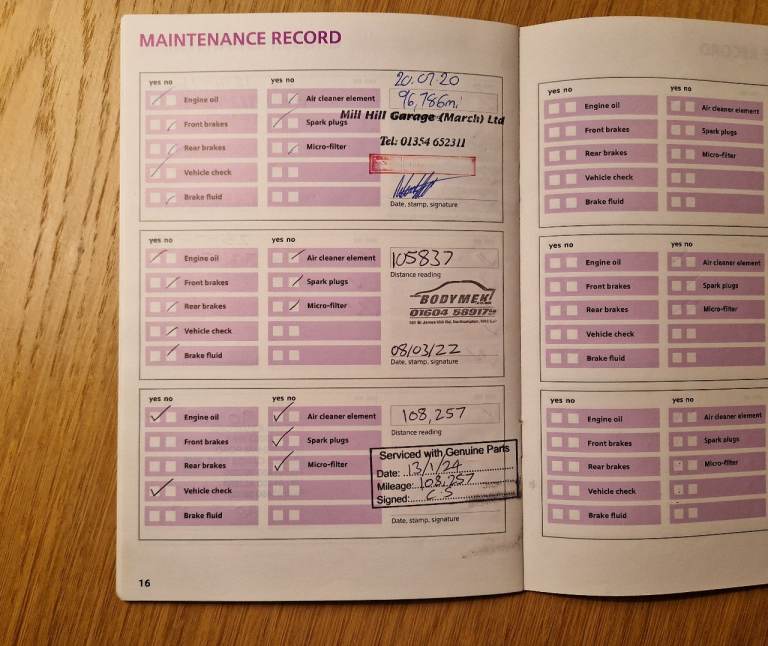 MAINTENANCE RECORD
yes no
yes no
Engine oil
Air cleaner element
Front brakes
Spark plugs
Rear brakes
Micro-filter
Vehicle check
Brake fluid
20.07.20
96,786mi
Mill Hill Garage (March) Ltd
Tel: 01354 652311
Date, stamp, signature
yes no
yes no
Engine oil
Air cleaner element
Front brakes
Spark plugs
Rear brakes
Micro-filter
Vehicle check
Brake fluid
105837
Distance reading
BODYMEK
01604 589179
08/03/22
Date, stamp, signature
yes no
yes no
Engine oil
Air cleaner element
Front brakes
Spark plugs
Rear brakes
Micro-filter
Vehicle check
Brake fluid
108,257
Distance reading
Serviced with Genuine Parts
Date: 13/1/24
Mileage: 108,257
Signed: C.S
Date, stamp, signature
16
yes no
yes no
Engine oil
Air cleaner element
Front brakes
Spark plugs
Rear brakes
Micro-filter
Vehicle check
Brake fluid
yes no
yes no
Engine oil
Air cleaner element
Front brakes
Spark plugs
Rear brakes
Micro-filter
Vehicle check
Brake fluid
yes no
yes no
Engine oil
Air cleaner element
Front brakes
Spark plugs
Rear brakes
Micro-filter
Vehicle check
Brake fluid